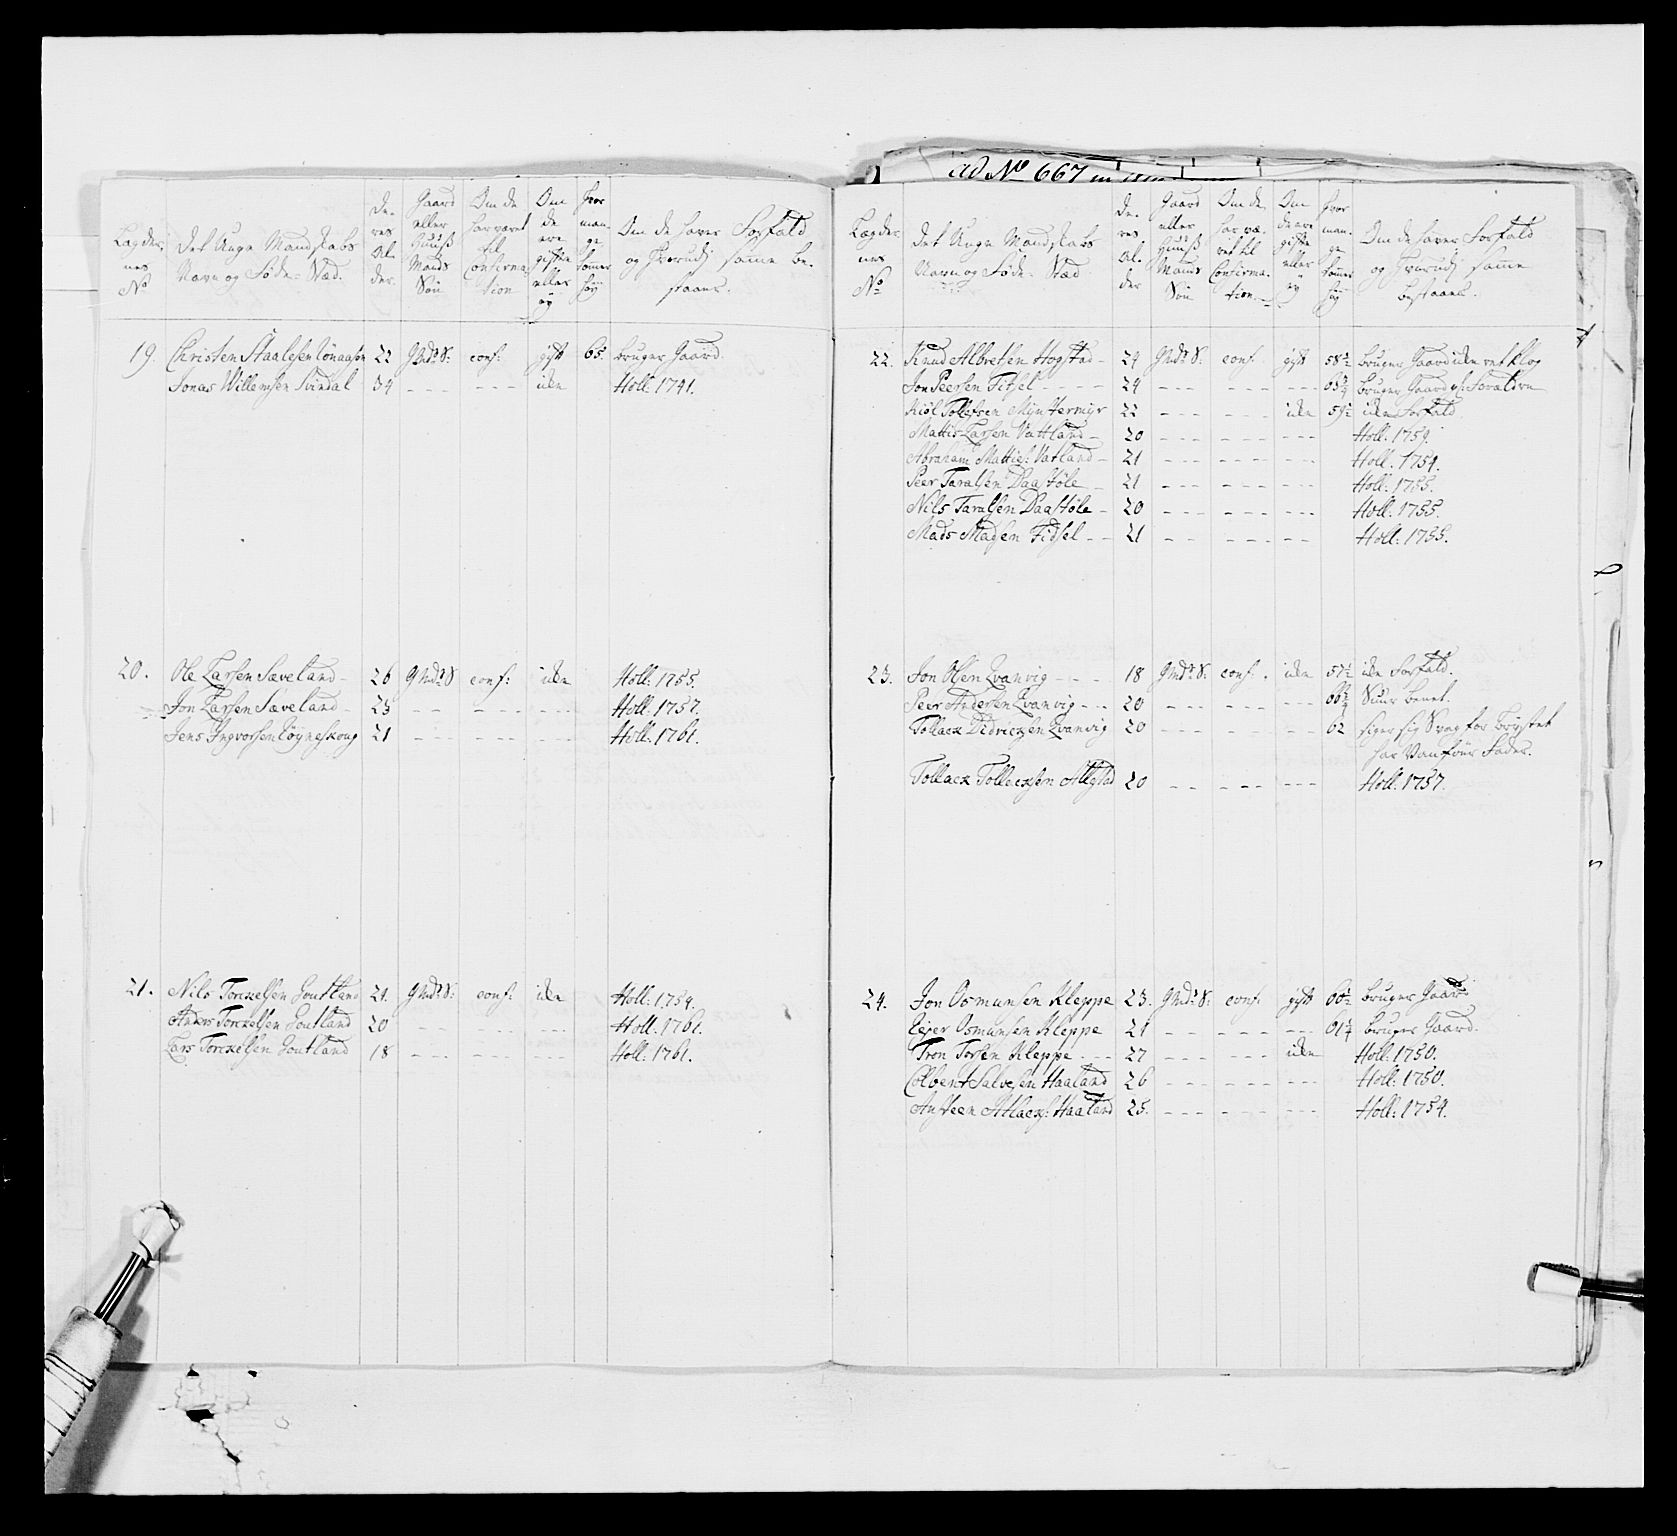 ad No 667
Lægder-
nes
No
Det Unge Mandskabs
Navn og Føde-Stæd.
De-
res
Al-
der.
Gaard
eller
Huuß
Mands
Søn
Om de
har været
til
Confirma-
tion
Om
de
ere
gifte
eller
ey
Hvor
man-
ge
Tomer
høy
Om de haver Forfald
og Hvorudj samme be-
staaer.
19. Christen Staalesen 22 GMds S: conf: gift 65. bruger Gaard.
Jonas Willemsen Svindal 34 - - - - - - iche Holl: 1741.
20. Ole Larsen Sæveland - 26 GMds S conf: iche Holl: 1755.
Jon Larsen Sæveland - 23 - - - - - - - - - Holl: 1757.
Jens Ingvorsen Løyneskoug 21 - - - - - - - - - Holl: 1761.
21. Nils Torckelsen Goutland 21. GMds S: conf: iche Holl: 1759.
Anders Torckelsen Goutland 20 - - - - - - - - - Holl: 1761.
Lars Torckelsen Goutland 18 - - - - - - - - - Holl: 1761.
Lægder-
nes
No
Det Unge Mandskabs
Navn og Føde-Stæd
De-
res
Al-
der
Gaard
eller
Huuß
Mands
Søn
Om de
har væ-
ret til
Confirma-
tion
Om
de ere
gifte
eller
ey
Hvor
man-
ge
Tomer
høy
Om de haver Forfald
og Hvorudj samme
bestaaer.
22. Knud Albretsen Hogstad - 24 GMds S. conf gift 58½ bruger Gaard iche ret klog
Jon Peersen Fidsel - - - 24 - - - - - - - - - bruger Gaard
Kiøl Tollefsen 22 - - - - - - iche iche Forfald.
Mattis Larsen Vattland - 20 - - - - - - - - - Holl: 1759.
Abraham Matties: Vatland - 21 - - - - - - - - - Holl. 1754.
Peer Taralsen Daastøle - 21 - - - - - - - - - Holl: 1755.
Nils Taralsen Daastøle - 20 - - - - - - - - - Holl. 1755.
Mads Madsen Fidsel - - 21 - - - - - - - - - Holl: 1755.
23. Jon Olsen Qvanvig - - - 18 GMds S: conf: iche 57½ iche Forfald.
Peer Andersen Qvanvig - - 20 - - - - - - - - - Skiur benet.
Tollack Didricksen Qvanvig 20 - - - - - - - - - 62 siger sig Svag for Brystet
har Vanfør Fader.
Tollack Tollacksen 20 - - - - - - - - - Holl: 1757.
24. Jon Osmunsen Kleppe 23. GMds S: conf: gift 60½ bruger Gaard
Osmunsen Kleppe 21 - - - - - - - - - 61¼ bruger Gaard.
Tron Torsen Kleppe. - - 27 - - - - - - iche Holl: 1750.
Colbent Salvesen Haaland 26 - - - - - - - - - Holl: 1750.
Austeen Atlacks: Haaland 25. - - - - - - - - - Holl: 1754.